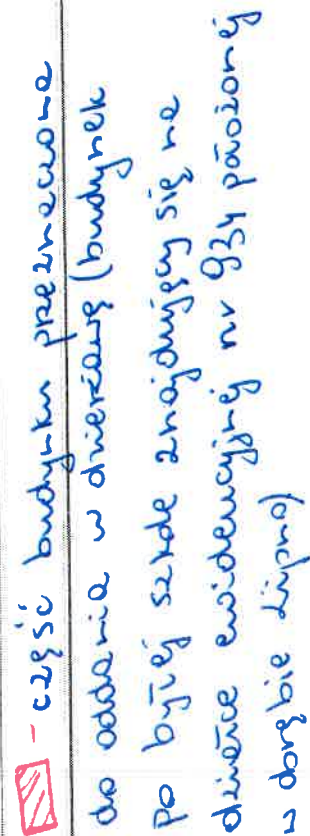 - część budynku przeznaczona
do oddania w dzierżawę (budynek
po byłej szkole znajdujący się na
działce ewidencyjnej nr 934 położonej
w obrębie Lipno)